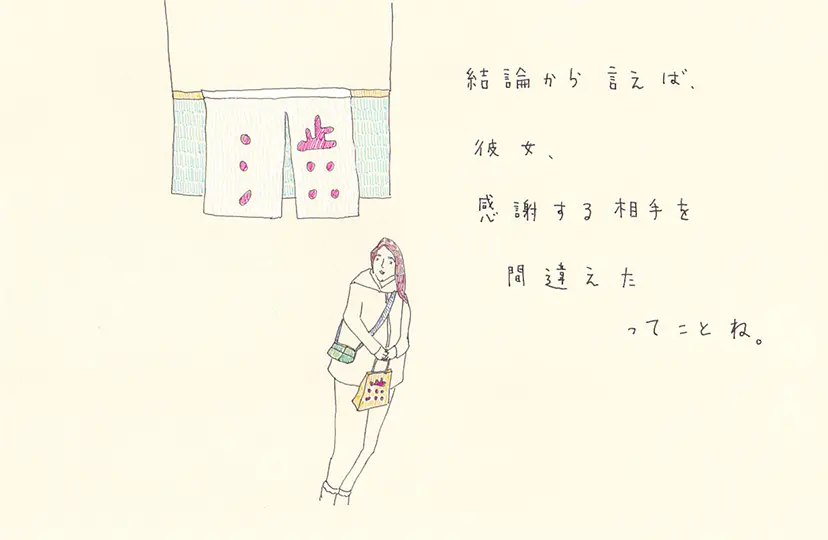 結論から言えば、
彼女、
感謝する相手を
間違えた
ってことね。